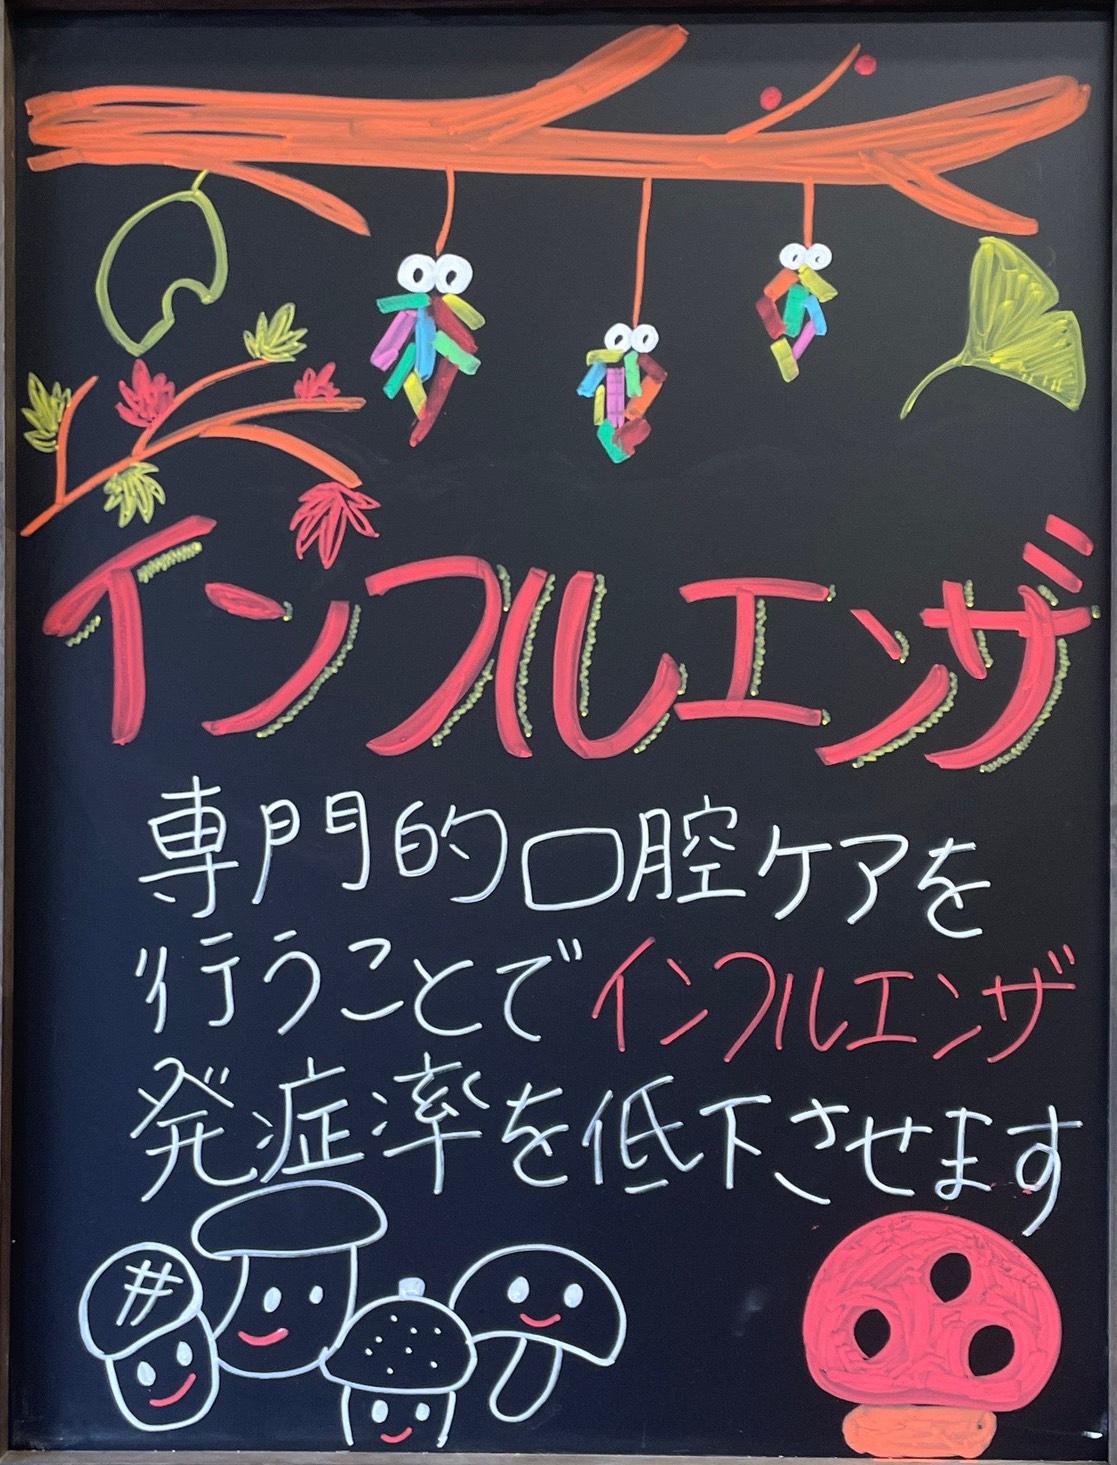 インフルエンザ
専門的口腔ケアを
行うことでインフルエンザ
発症率を低下させます